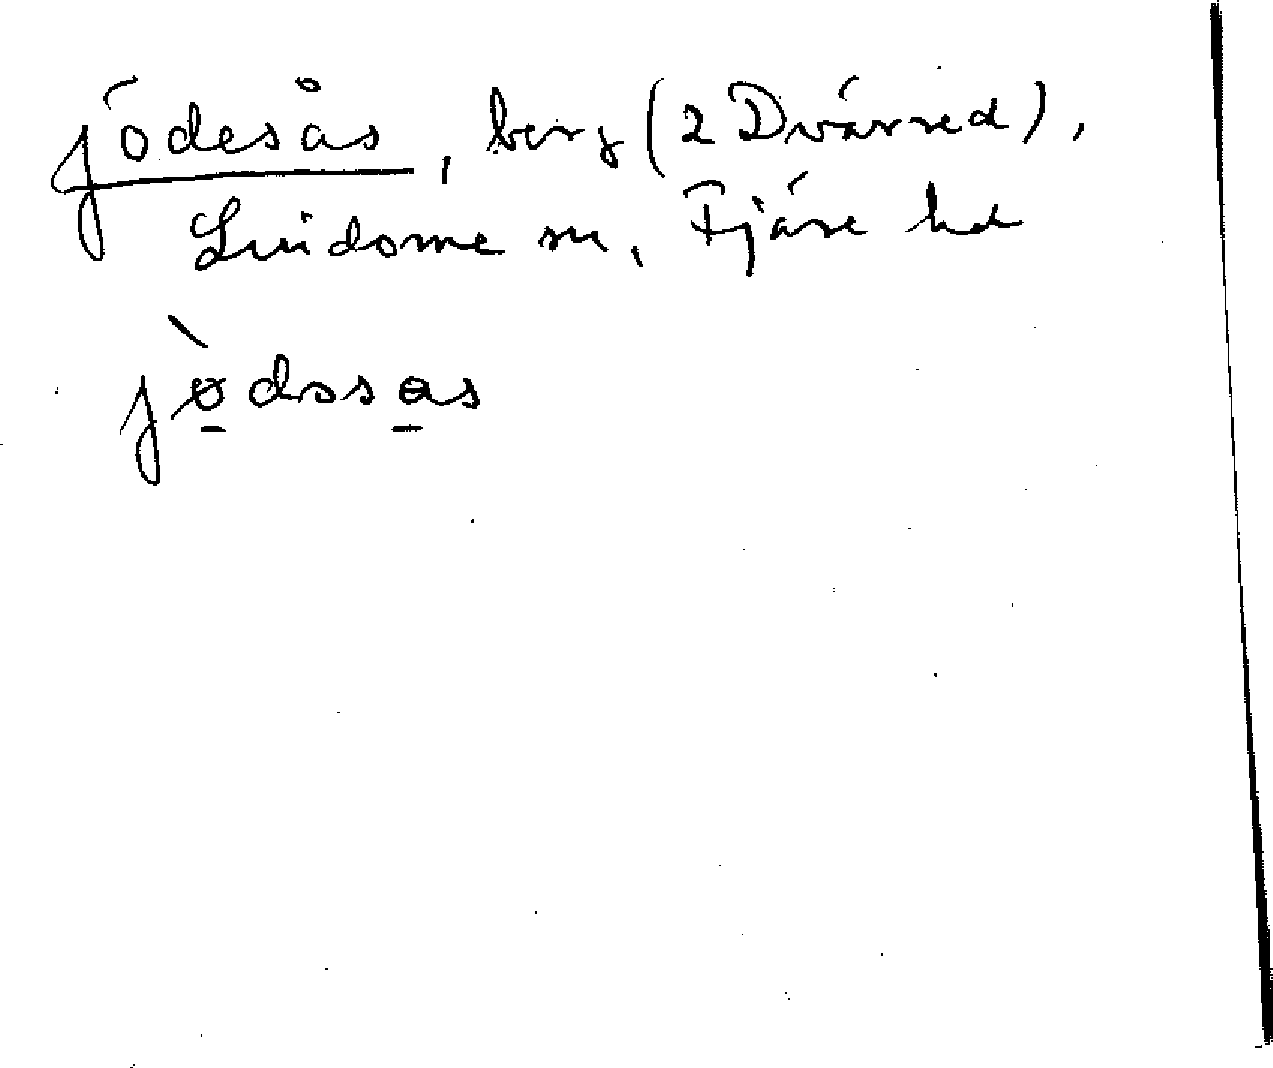 jödesås, berg (2 Dvärred),
Lindome sn, Fjäre hd
jödssas